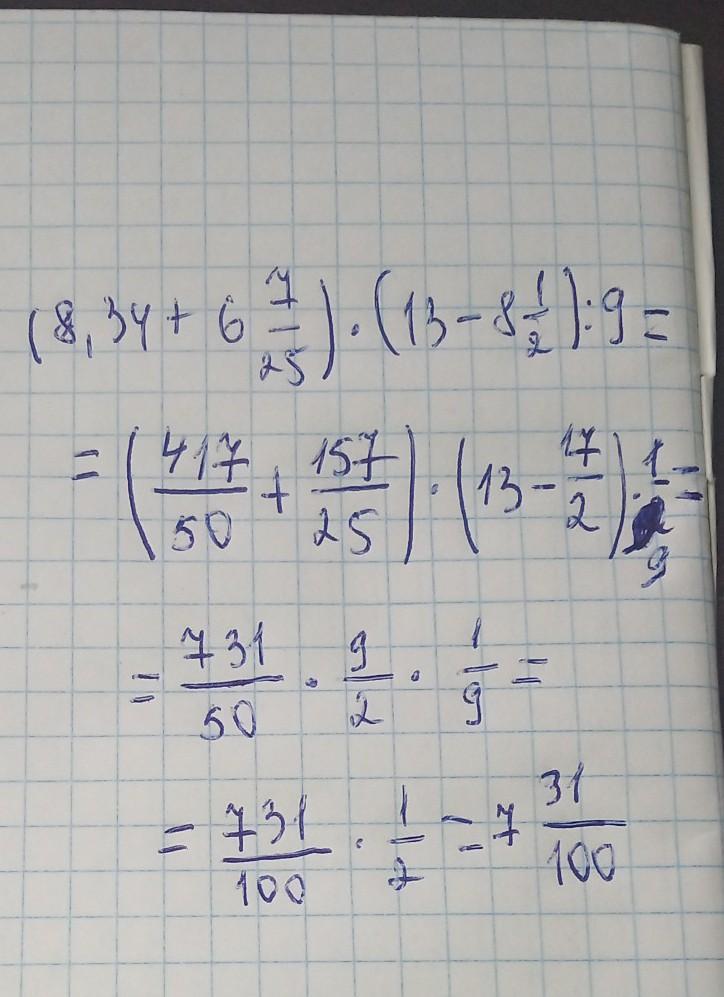 (8,34 + 6 7/25) · (13 - 8 1/2) : 9 =
= (417/50 + 157/25) · (13 - 17/2) · 1/9 =
= 731/50 · 9/2 · 1/9 =
= 731/100 · 1/2 = 7 31/100